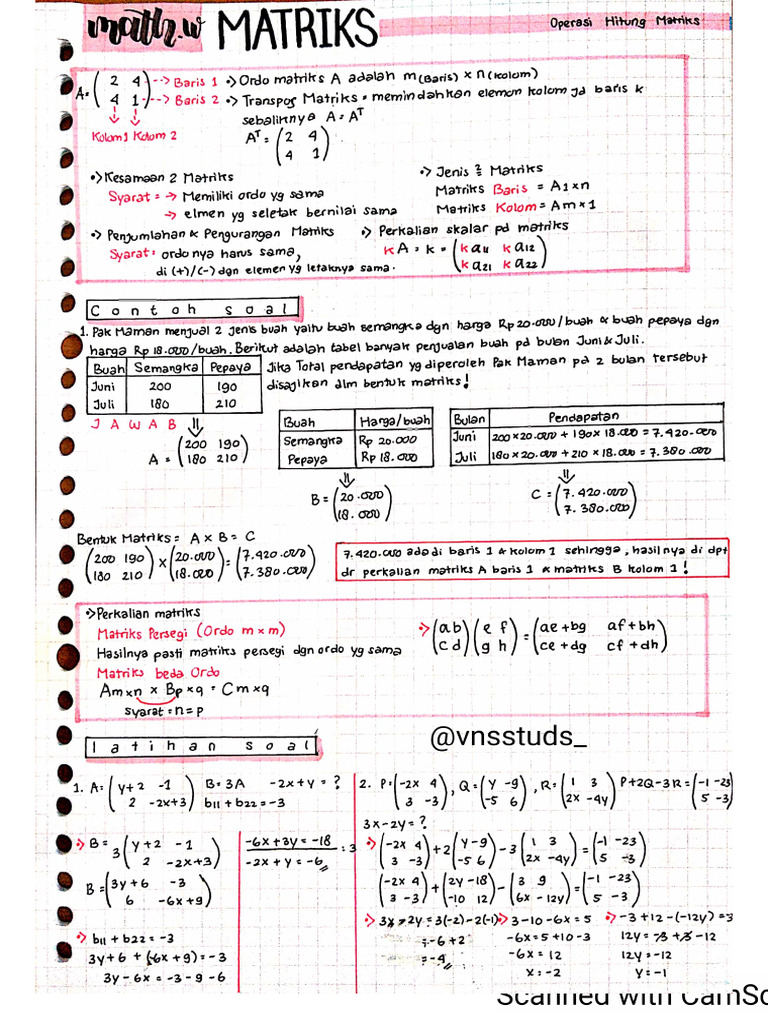 math.w MATRIKS
Operasi Hitung Matriks
A = ( 2 4 ) --> Baris 1
( 4 1 ) --> Baris 2
Kolom 1 Kolom 2
•> Ordo matriks A adalah m (Baris) x n (kolom)
•> Transpos Matriks = memindahkan elemen kolom jd baris &
sebaliknya A = Aᵀ
Aᵀ = ( 2 4 )
( 4 1 )
•> Kesamaan 2 Matriks
Syarat = → Memiliki ordo yg sama
→ elmen yg seletak bernilai sama
•> Jenis ² Matriks
Matriks Baris = A1xn
Matriks Kolom = Amx1
•> Penjumlahan & Pengurangan Matriks
Syarat = ordo nya harus sama,
di (+)/(-) dgn elemen yg letaknya sama.
•> Perkalian skalar pd matriks
kA = k = ( k a11 k a12 )
( k a21 k a22 )
Contoh soal
1. Pak Maman menjual 2 jenis buah yaitu buah semangka dgn harga Rp 20.000/buah & buah pepaya dgn
harga Rp 18.000/buah. Berikut adalah tabel banyak penjualan buah pd bulan Juni & Juli.
Buah Semangka Pepaya
Juni 200 190
Juli 180 210
Jika Total pendapatan yg diperoleh Pak Maman pd 2 bulan tersebut
disajikan dlm bentuk matriks!
JAWAB
A = ( 200 190 )
( 180 210 )
Buah Harga/buah
Semangka Rp 20.000
Pepaya Rp 18.000
B = ( 20.000 )
( 18.000 )
Bulan Pendapatan
Juni 200 x 20.000 + 190 x 18.000 = 7.420.000
Juli 180 x 20.000 + 210 x 18.000 = 7.380.000
C = ( 7.420.000 )
( 7.380.000 )
Bentuk Matriks = A x B = C
( 200 190 ) x ( 20.000 ) = ( 7.420.000 )
( 180 210 ) ( 18.000 ) ( 7.380.000 )
7.420.000 ada di baris 1 & kolom 1 sehingga, hasilnya di dpt
dr perkalian matriks A baris 1 & matriks B kolom 1!
•> Perkalian matriks
Matriks Persegi (Ordo m x m)
Hasilnya pasti matriks persegi dgn ordo yg sama
Matriks beda Ordo
Amxn x Bpxq = Cmxq
syarat = n = p
•> ( a b ) ( e f ) = ( ae+bg af+bh )
( c d ) ( g h ) ( ce+dg cf+dh )
latihan soal
@vnsstuds_
1. A = ( y+2 -1 ) B = 3A -2x+y = ?
( 2 -2x+3 ) b11 + b22 = -3
•> B = 3 ( y+2 -1 )
( 2 -2x+3 )
B = ( 3y+6 -3 )
( 6 -6x+9 )
•> b11 + b22 = -3
3y+6 + (-6x+9) = -3
3y - 6x = -3 -9 -6
-6x + 3y = -18 : 3
-2x + y = -6
2. P = ( -2x 4 ), Q = ( y -9 ), R = ( 1 3 ) P+2Q-3R = ( -1 -23 )
( 3 -3 ) ( -5 6 ) ( 2x -4y ) ( 5 -3 )
3x-2y = ?
•> ( -2x 4 ) + 2 ( y -9 ) - 3 ( 1 3 ) = ( -1 -23 )
( 3 -3 ) ( -5 6 ) ( 2x -4y ) ( 5 -3 )
( -2x 4 ) + ( 2y -18 ) - ( 3 9 ) = ( -1 -23 )
( 3 -3 ) ( -10 12 ) ( 6x -12y ) ( 5 -3 )
•> 3x - 2y = 3(-2) - 2(-1)
= -6 + 2
= -4
•> 3 - 10 - 6x = 5
-6x = 5 + 10 - 3
-6x = 12
x = -2
•> -3 + 12 - (-12y) = -3
12y = -3 + 3 - 12
12y = -12
y = -1
Scanned with CamSc